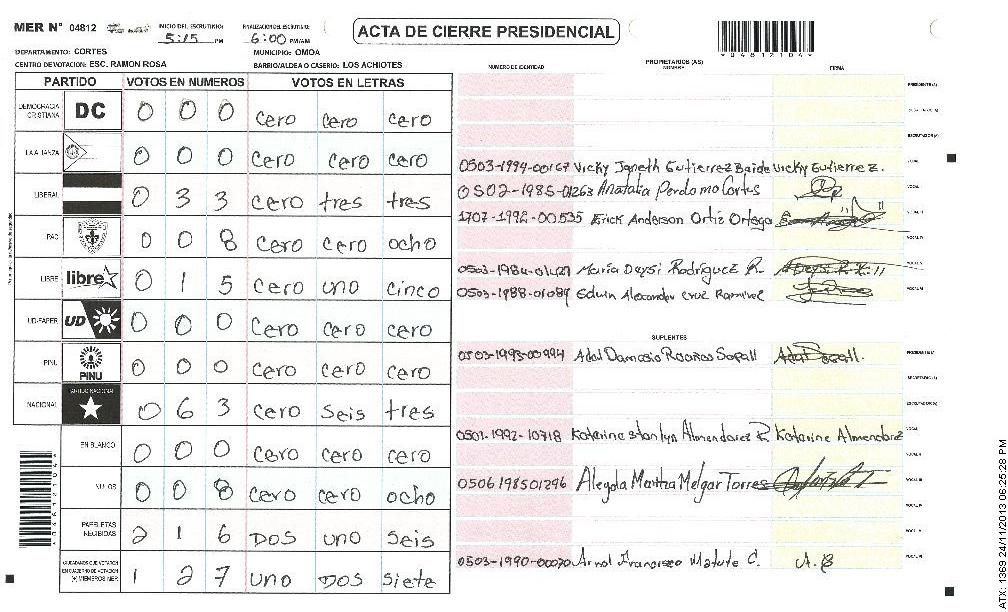 MER N° 04812 INICIO DEL ESCRUTINIO: 5:15 PM FINALIZACION DEL ESCRUTINIO: 6:00 PM/AM
ACTA DE CIERRE PRESIDENCIAL
*04812104*
DEPARTAMENTO: CORTES MUNICIPIO: OMOA
CENTRO DE VOTACION: ESC. RAMON ROSA BARRIO/ALDEA O CASERIO: LOS ACHIOTES
PARTIDO VOTOS EN NUMEROS VOTOS EN LETRAS
DEMOCRACIA CRISTIANA DC 0 0 0 cero cero cero
LA ALIANZA 0 0 0 cero cero cero
LIBERAL 0 3 3 cero tres tres
PAC 0 0 8 cero cero ocho
LIBRE libre 0 1 5 cero uno cinco
UD-FAPER UD 0 0 0 cero cero cero
PINU PINU 0 0 0 cero cero cero
NACIONAL PARTIDO NACIONAL 0 6 3 cero seis tres
EN BLANCO 0 0 0 cero cero cero
NULOS 0 0 8 cero cero ocho
PAPELETAS RECIBIDAS 2 1 6 DOS uno seis
CIUDADANOS QUE VOTARON EN CUADERNO DE VOTACION (+) MIEMBROS MER 1 2 7 uno DOS siete
NUMERO DE IDENTIDAD PROPIETARIOS (AS) NOMBRE FIRMA
PRESIDENTE (A)
SECRETARIO (A)
ESCRUTADOR (A)
0503-1994-00167 Vicky Janeth Gutierrez Baide Vicky Gutierrez. VOCAL I
0502-1985-01263 Anatalia Perdomo Cortes VOCAL II
1707-1992-00535 Erick Anderson Ortiz Ortega VOCAL III
VOCAL IV
0503-1984-01427 Maria Deysi Rodriguez R. VOCAL V
0503-1988-01089 Edwin Alexander Cruz Ramirez VOCAL VI
SUPLENTES
0503-1993-00994 Adal Damasio PRESIDENTE (A)
SECRETARIO (A)
ESCRUTADOR (A)
0501-1992-10718 Katerine Almendarez R. Katerine Almendarez VOCAL I
VOCAL II
0506198501296 Melgar Torres VOCAL III
VOCAL IV
VOCAL V
0503-1990-00070 Arnol Francisco Matute C. VOCAL VI
ATX: 1369 24/11/2013 06:25:28 PM